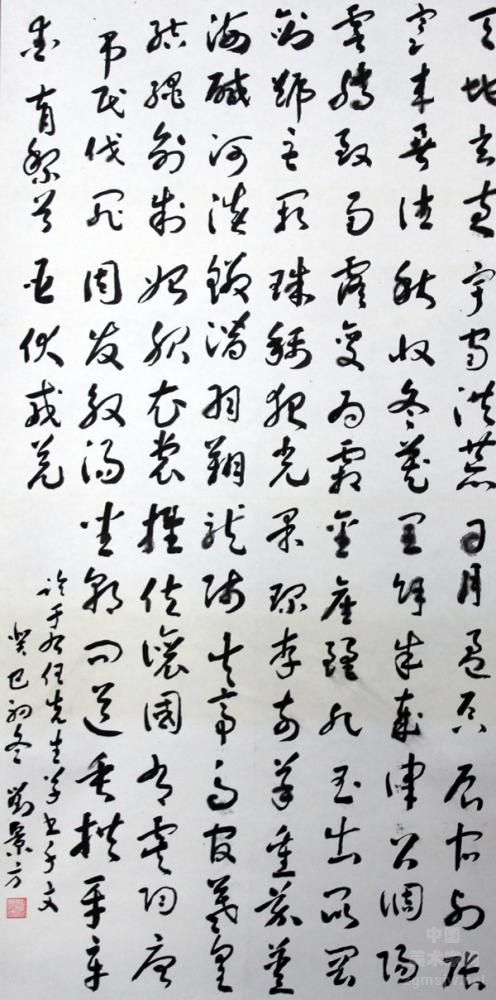 天地玄黃宇宙洪荒日月盈昃辰宿列張
寒來暑往秋收冬藏閏餘成歲律呂調陽
雲騰致雨露變為霜金生麗水玉出崑岡
劍號巨闕珠稱夜光果珍李柰菜重芥薑
海鹹河淡鱗潛羽翔龍師火帝鳥官羲皇
結繩創制始服衣裳推位讓國有虞陶唐
弔民伐罪周發殷湯坐朝問道垂拱平章
愛育黎首臣伏戎羌
臨于右任先生草書千文
癸巳初冬 劉景方
中国
美术家网